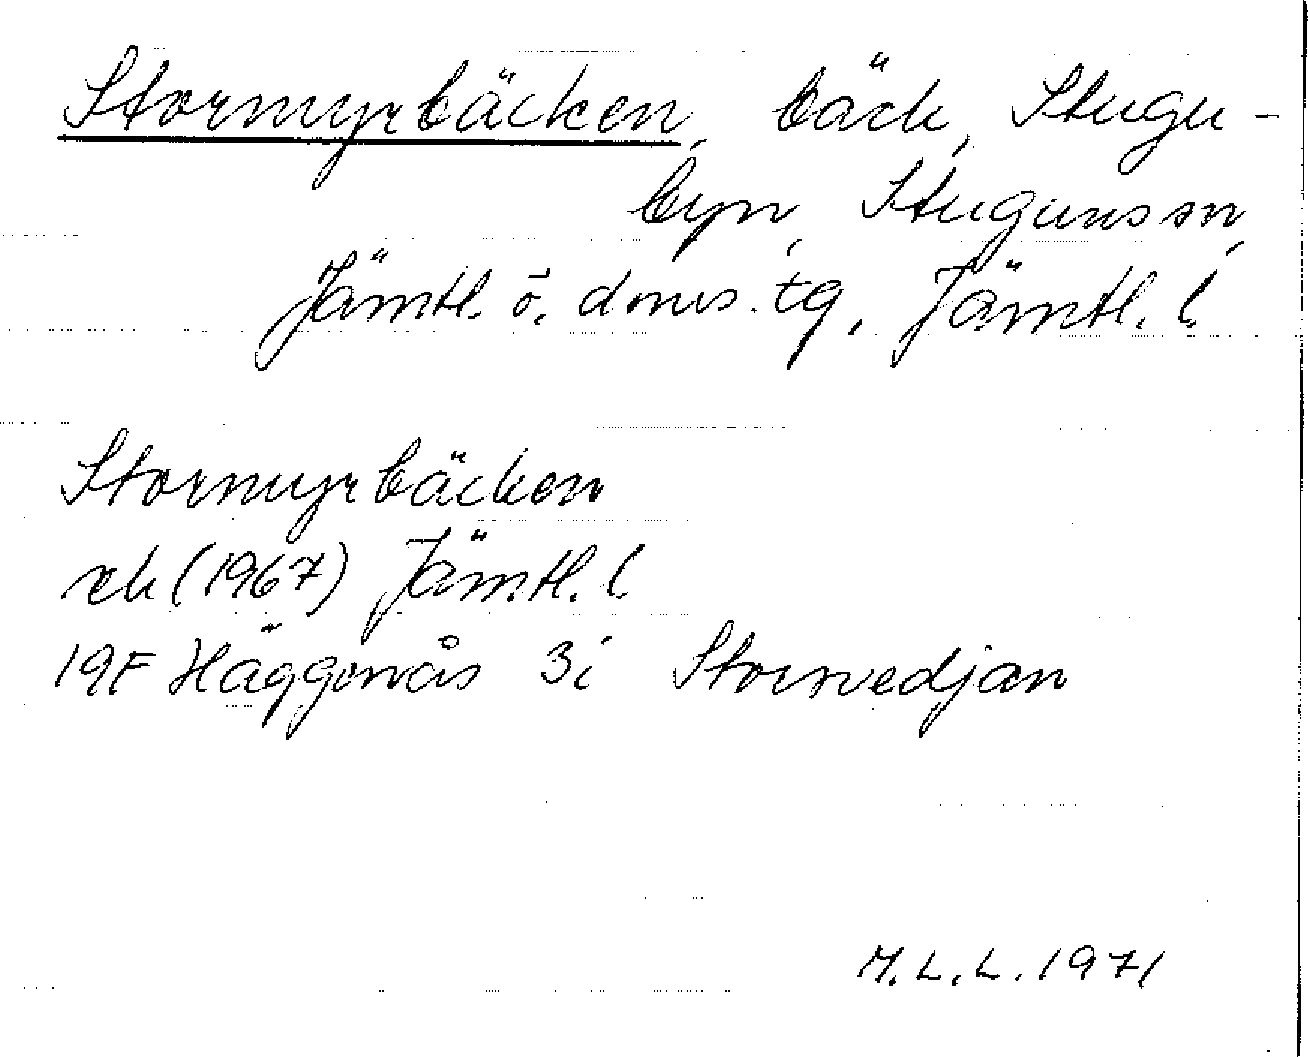 Stormyrbäcken, bäck, Stugu-
byn, Stuguns sn,
Jämtl. ö. doms. tg, Jämtl. l
Stormyrbäcken
rek (1967) Jämtl. l
19F Häggenås 3i Storsvedjan
M.L.L. 1971